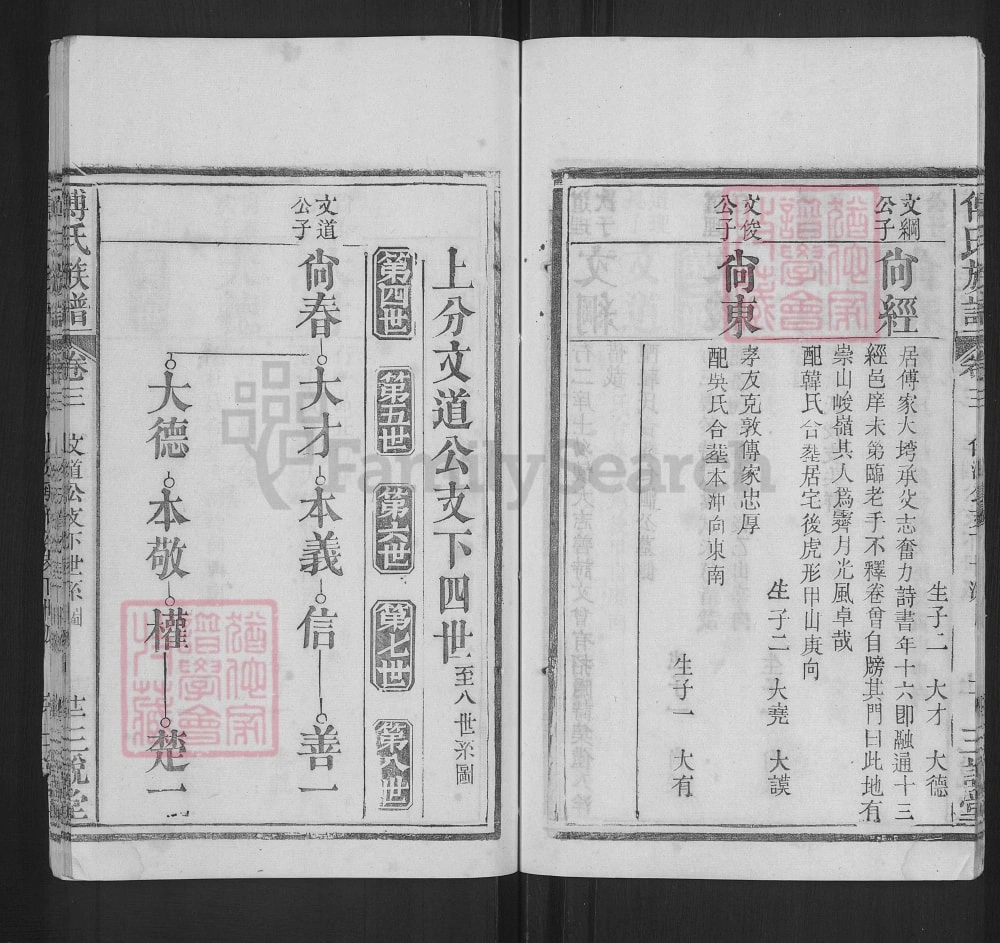 文綱
公子
尙經
生子二 大才 大德
居傅家大塆承父志奮力詩書年十六卽融通十三
經邑庠未第臨老手不釋卷曾自牓其門曰此地有
崇山峻嶺其人爲霽月光風卓哉
配韓氏合塟居宅後虎形甲山庚向
生子二 大堯 大謨
文俊
公子
尙東
孝友克敦傳家忠厚
配吳氏合塟本沖向東南
生子一 大有
上分文道公支下四世至八世系圖
第四世 第五世 第六世 第七世 第八世
文道
公子
尙春 大才 本義 信一 善一
大德 本敬 權一 楚一
傅氏族譜 卷三 文道公支下世系圖
FamilySearch